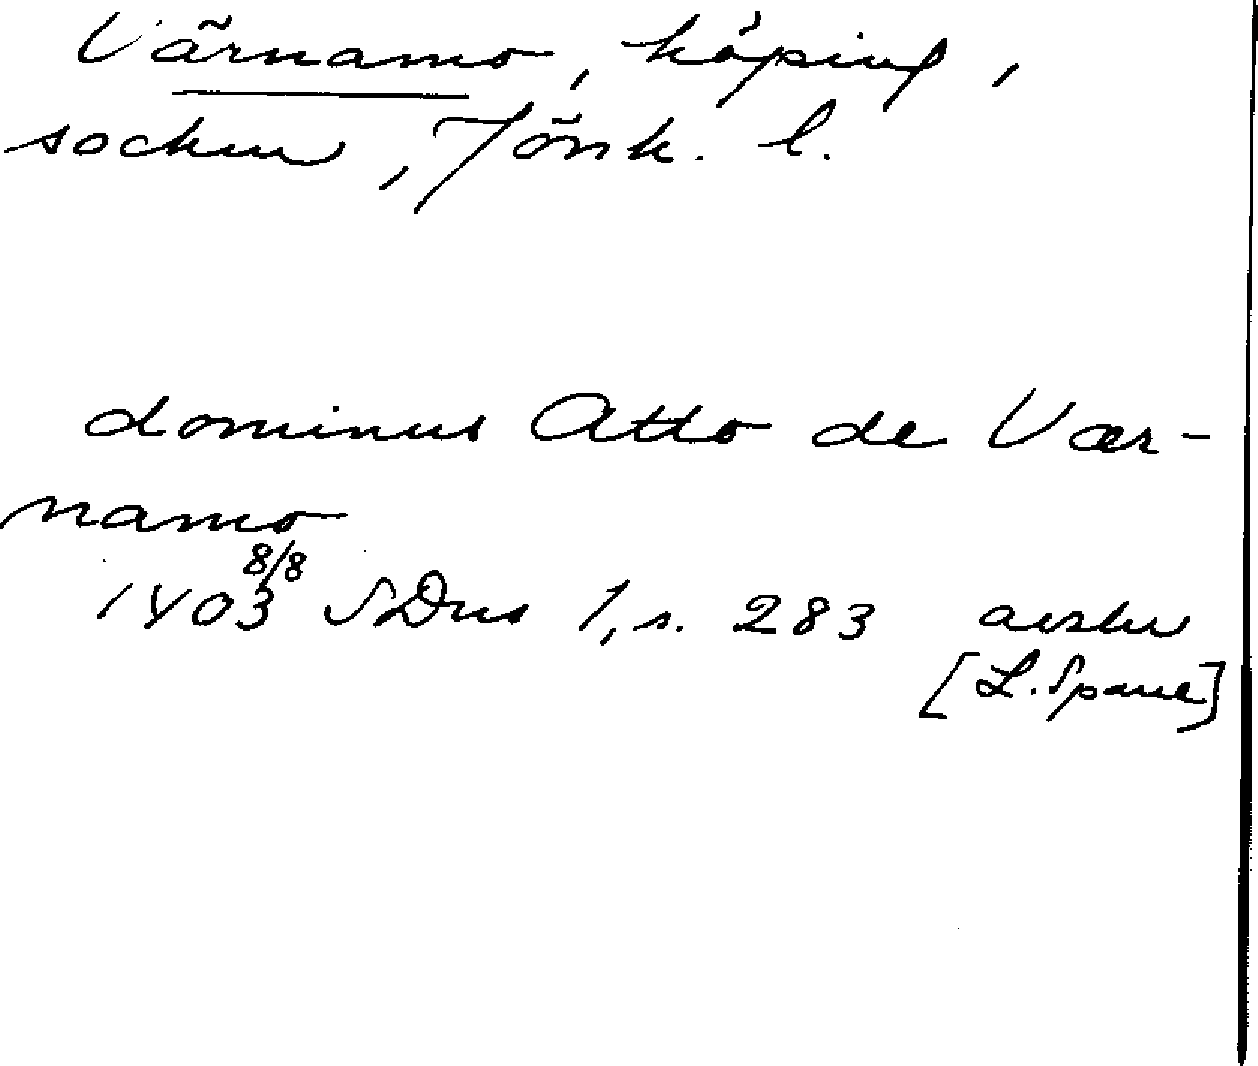 Värnamo, köping,
socken, Jönk. l.
dominus Atto de Vær-
namo
1403 8/8 SDns 1, s. 283 avskr
[L. Spane]